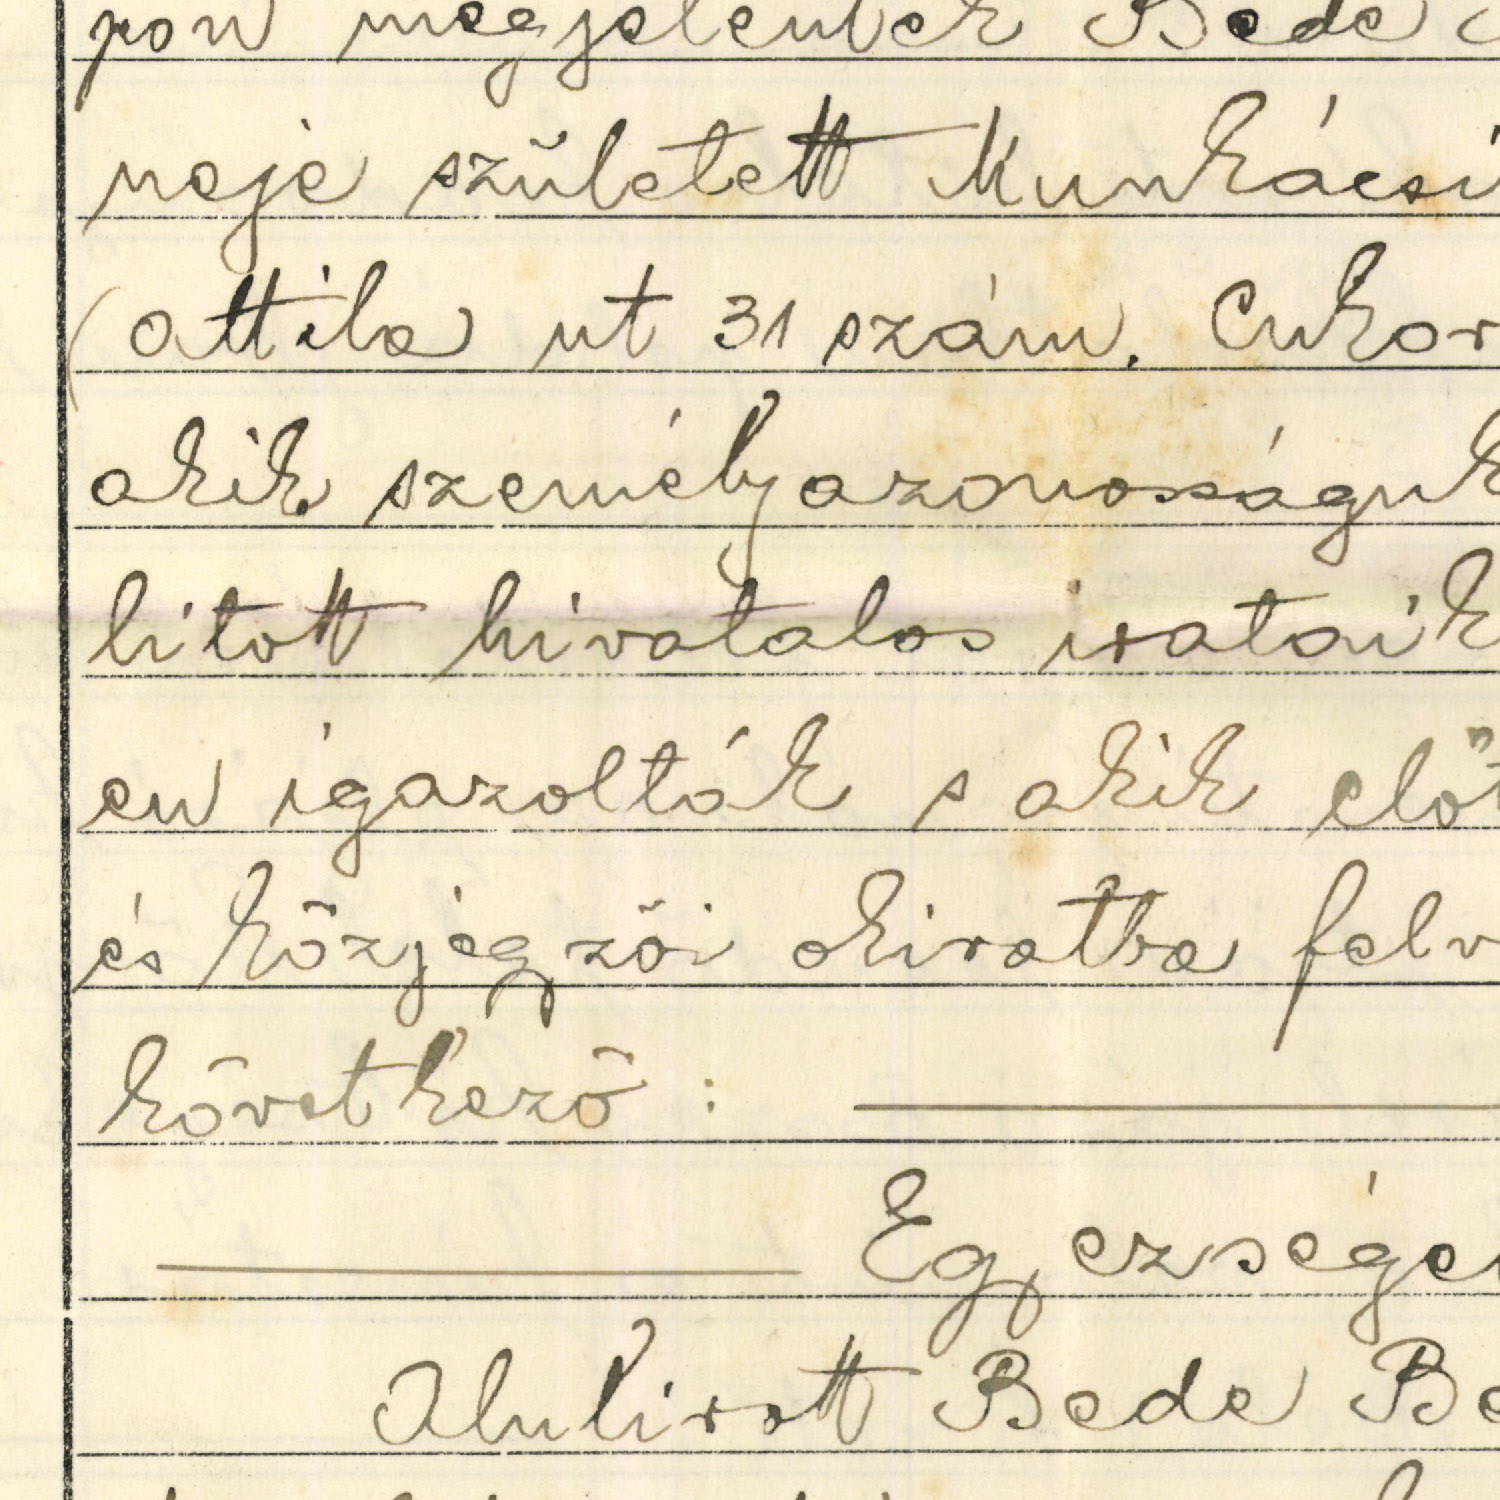 pon megjelentek Bede
neje született Munkácsi
(Attila ut 31 szám. Cukor
akik személyazonosságuk
litott hivatalos irataik
en igazolták s akik előt
és közjegyzői okiratba felv
következő :
Egyezségen
Alulirott Bede Be